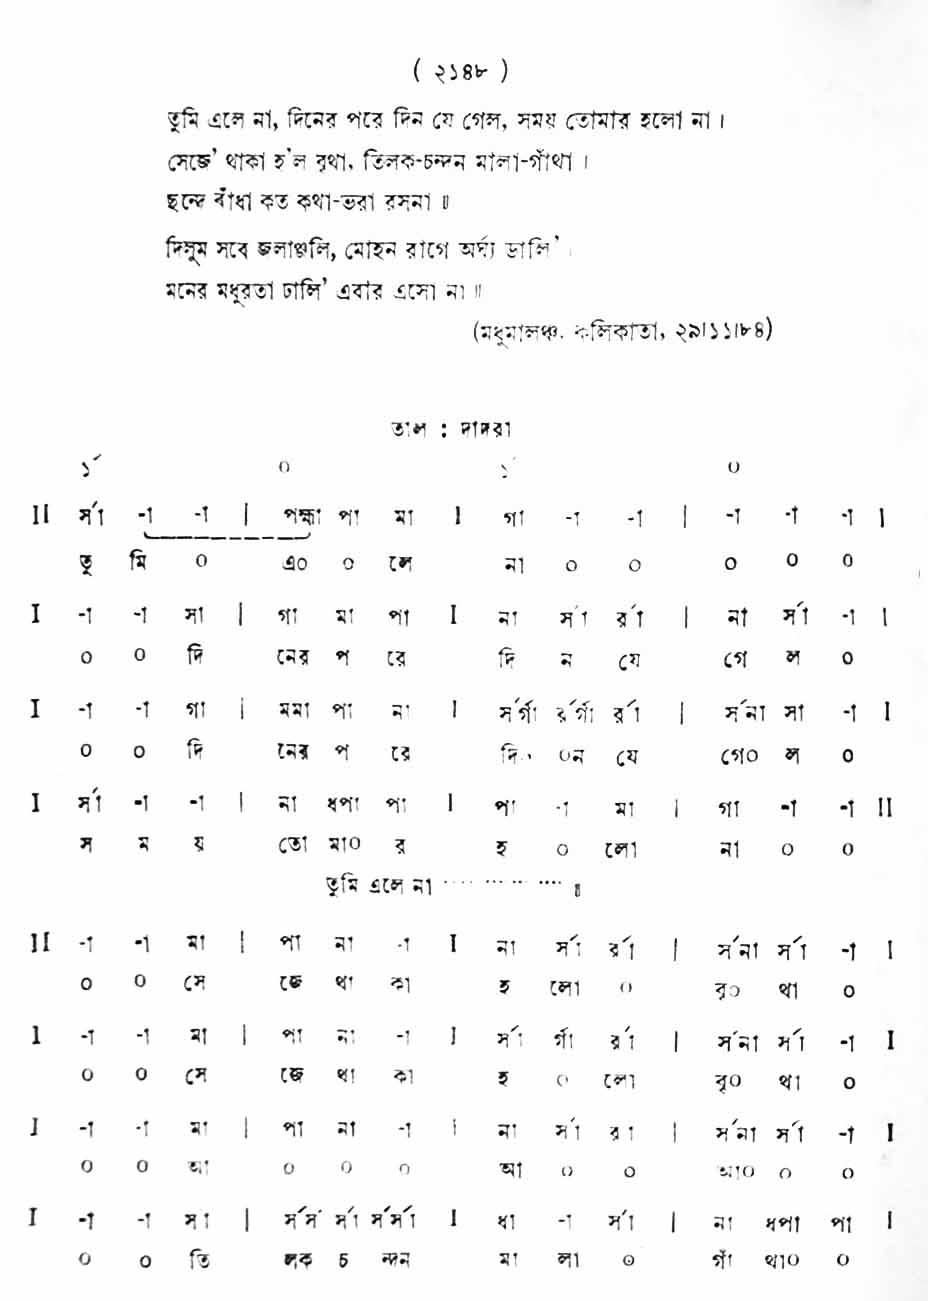 ( ২১৪৮ )
তুমি এলে না, দিনের পরে দিন যে গেল, সময় তোমার হলো না ।
সেজে’ থাকা হ’ল বৃথা, তিলক-চন্দন মালা-গাঁথা ।
ছন্দে বাঁধা কত কথা-ভরা রসনা ॥
দিলুম সবে জলাঞ্জলি, মোহন রাগে অর্ঘ্য ডালি’ ।
মনের মধুরতা ঢালি’ এবার এসো না ॥
(মধুমালঞ্চ. কলিকাতা, ২৯।১১।৮৪)
তাল : দাদরা
১´ ০ ১´ ০
II র্সা -া -া | পহ্মা পা মা I গা -া -া | -া -া -া I
তু মি ০ এ০ ০ লে না ০ ০ ০ ০ ০
I -া -া সা | গা মা পা I না র্সা র্রা | না র্সা -া I
০ ০ দি নের প রে দি ন যে গে ল ০
I -া -া গা | মমা পা না I র্সর্গা র্রর্গা র্রা | র্সনা সা -া I
০ ০ দি নের প রে দি০ ০ন যে গে০ ল ০
I র্সা -া -া | না ধপা পা I পা -া মা | গা -া -া II
স ম য় তো মা০ র হ ০ লো না ০ ০
তুমি এলে না ·············· ॥
II -া -া মা | পা না -া I না র্সা র্রা | র্সনা র্সা -া I
০ ০ সে জে থা কা হ লো ০ বৃ০ থা ০
I -া -া মা | পা না -া I র্সা র্গা র্রা | র্সনা র্সা -া I
০ ০ সে জে থা কা হ ০ লো বৃ০ থা ০
I -া -া মা | পা না -া I না র্সা রা | র্সনা র্সা -া I
০ ০ আ ০ ০ ০ আ ০ ০ আ০ ০ ০
I -া -া সা | র্সর্স র্সা র্সর্সা I ধা -া র্সা | না ধপা পা I
০ ০ তি লক চ ন্দন মা লা ০ গাঁ থা০ ০